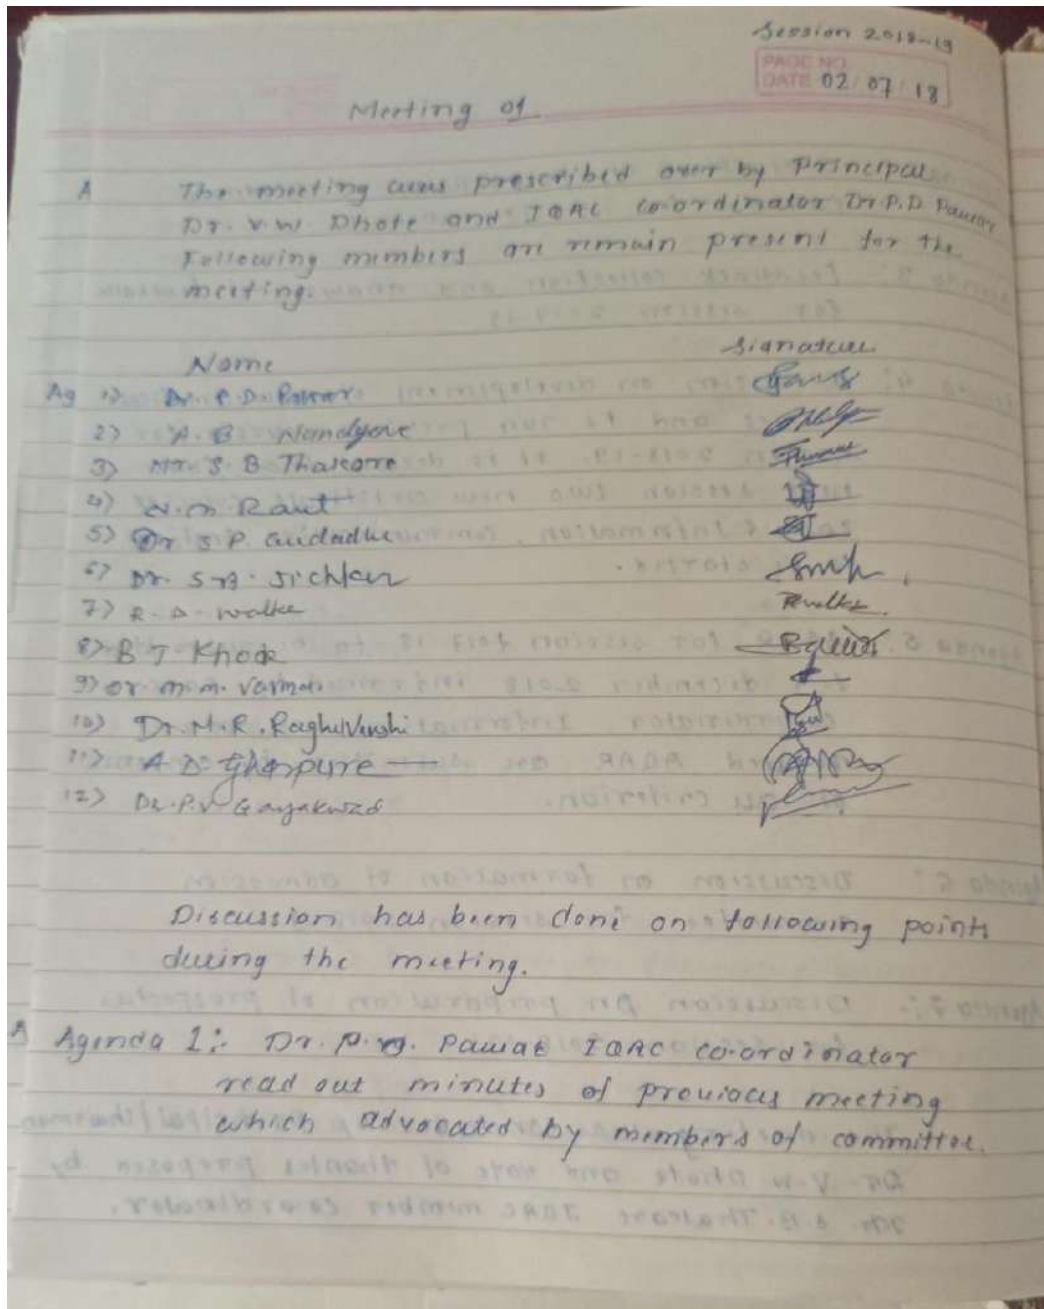 Session 2018-19
PAGE NO.
DATE 02/07/18
Meeting 01
A The meeting was prescribed over by Principal
Dr. V.W. Dhote and IQAC co-ordinator Dr P.D. Pawar
Following members are remain present for the
meeting.
Name Signature
Ag 1) Dr. P.D. Pawar
2) A. B
3) Mr. S. B Thakare
4) N. M Raut
5) Dr S P. Guidadhe
6) Dr. S A. Sichkar
7) R. D. Walke
8) B T Khode
9) Dr. M. M. Varma
10) Dr. M. R. Raghuvanshi
11) A D Gharpure
12) Dr. P.V Gayakwad
Discussion has been done on following points
during the meeting.
A Agenda 1:- Dr. P. D. Pawar IQAC co-ordinator
read out minutes of previous meeting
which advocated by members of committee.